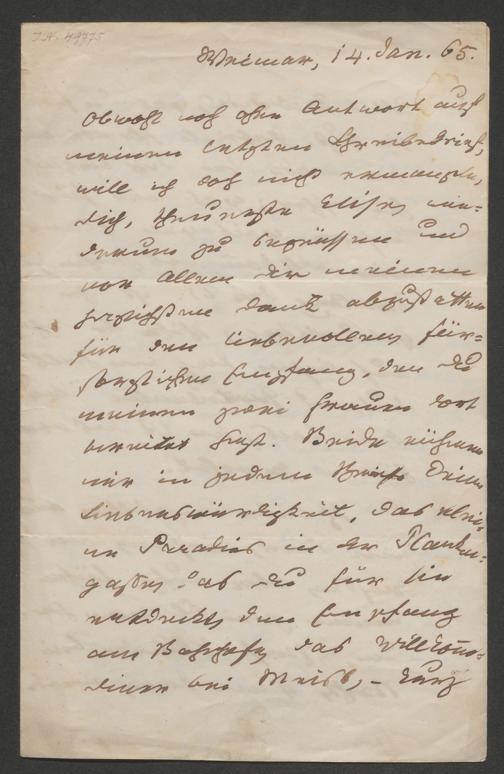 I.N. 49775
Weimar, 14. Jan. 65.
Obwohl noch ohne Antwort auf
meinen letzten Schreibebrief,
will ich doch nicht ermangeln,
dich, theuerste Elise, wie-
derum zu begrüßen und
vor Allem dir meinen
herzlichsten Dank abzustatten
für den liebevollen, für-
sorglichen Empfang, den du
meinen zwei Frauen dort
bereitet hast. Beide rühmen
mir in jedem Briefe Deine
Liebenswürdigkeit, das klei-
ne Paradies in der Planken-
gasse, das du für sie
entdeckt, den Empfang
am Bahnhofe, das Willkomm-
diner bei Meißl, – kurz